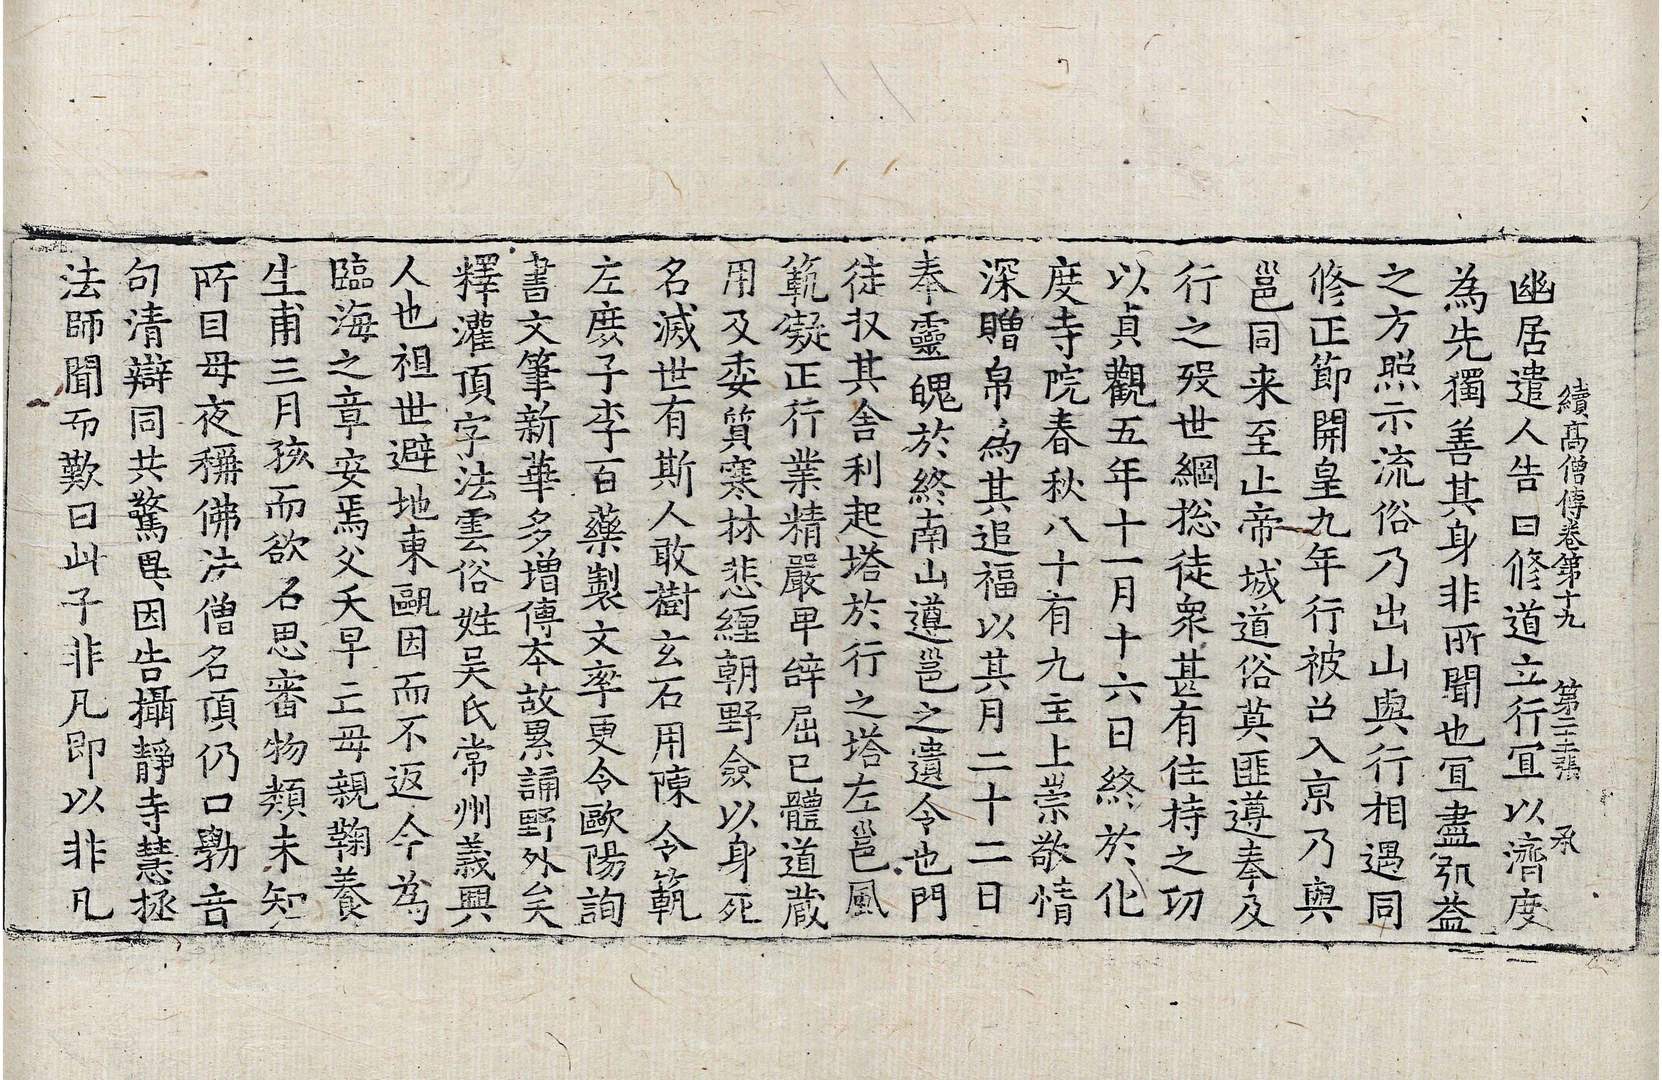 續高僧傳卷第十九 第二十三張 承
幽居遣人告曰修道立行宜以濟度
為先獨善其身非所聞也宜盡引益
之方照示流俗乃出山與行相遇同
修正節開皇九年行被召入京乃與
邕同来至止帝城道俗莫匪遵奉及
行之歿世綱捴徒衆甚有住持之功
以貞觀五年十一月十六日終於化
度寺院春秋八十有九主上崇敬情
深贈帛為其追福以其月二十二日
奉靈魄於終南山遵邕之遺令也門
徒収其舍利起塔於行之塔左邕風
範凝正行業精嚴卑辞屈已體道藏
用及委質寒林悲纏朝野僉以身死
名滅世有斯人敢樹玄石用陳令範
左庶子李百藥製文率更令歐陽詢
書文筆新華多增傳夲故累誦野外矣
釋灌頂字法雲俗姓吴氏常州義興
人也祖世避地東甌因而不返今為
臨海之章安焉父夭早亡母親鞠養
生甫三月孩而欲名思審物類未知
所目母夜稱佛法僧名頂仍口斆音
句清辯同共驚異因告攝靜寺慧拯
法師聞而歎曰此子非凡即以非凡